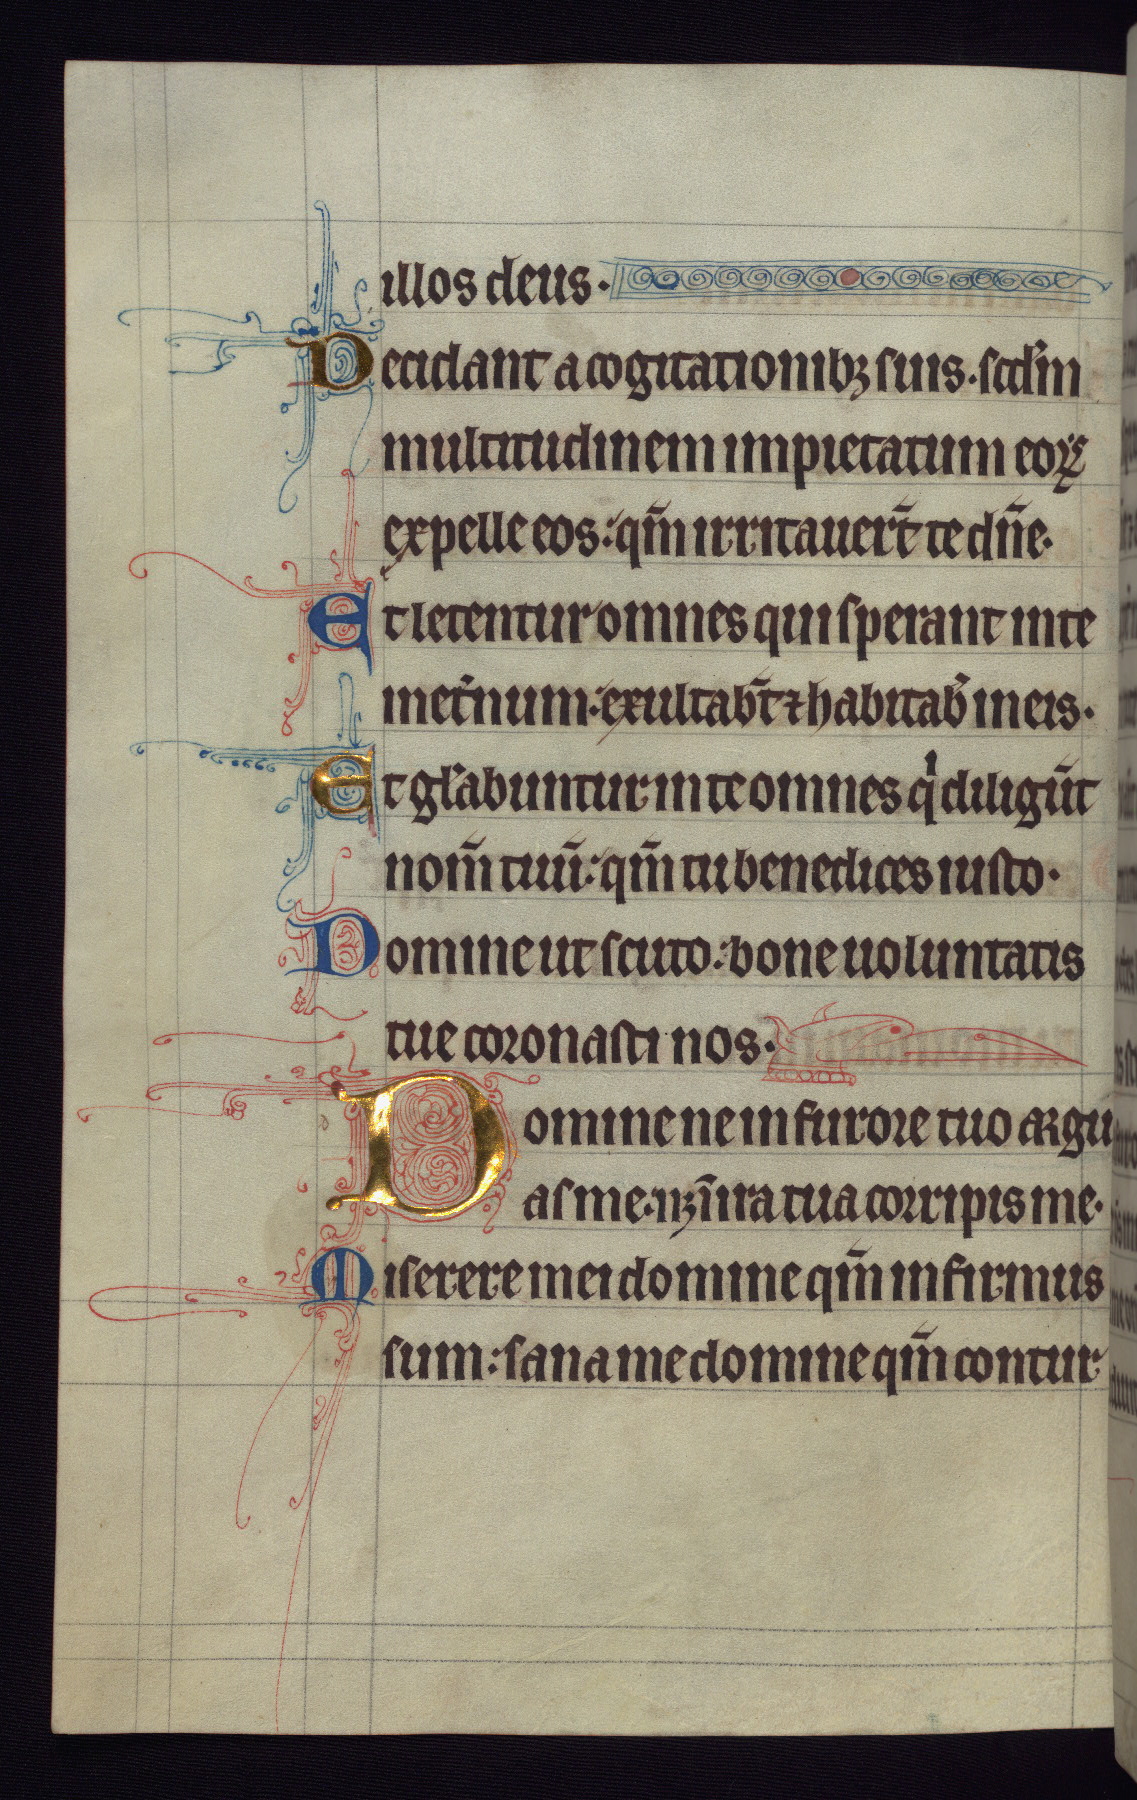 illos deus.
Decidant a cogitationibꝫ suis. scdm̄
multitudinem impietatum eoꝝ
expelle eos: qm̄ irritauer̄t te dn̄e.
Et letentur omnes qui sperant in te
in et̾num: exultab̄t ⁊ habitab̾ in eis.
Et gl̾abuntur in te omnes qͥ diligūt
nom̄ tuū: qm̄ tu benedices iusto.
Domine ut scuto: bone uoluntatis
tue coronasti nos.
Domine ne in furore tuo argu
as me. nꝫ in̄ ira tua corripis me.
Miserere mei domine qm̄ infirmus
sum: sana me domine qm̄ contur